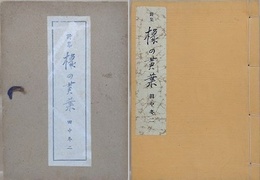 詩集
橡の黄葉
田中冬二
詩集
橡の黄葉
田中冬二